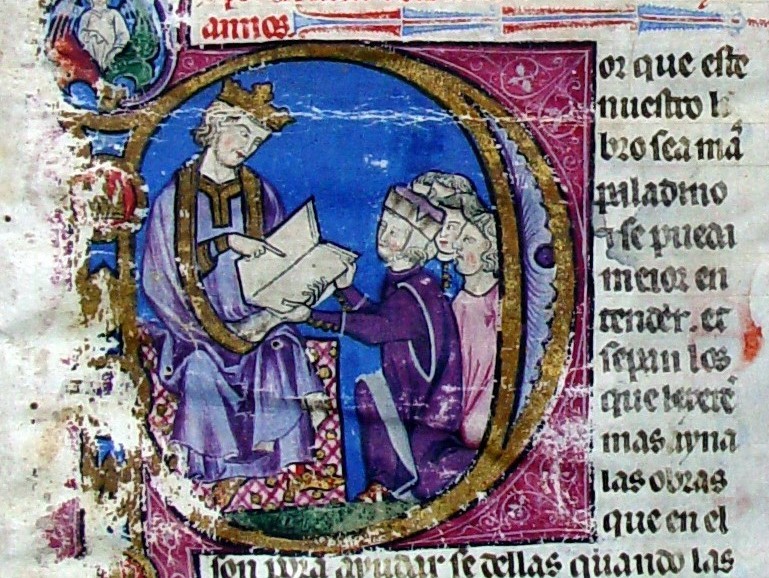 annos.
or que este
nuestro li
bro sea mã
paladino
⁊ se pueda
meior en
tender. et
sepan los
que lo
mas ayna
las obras
que en el
son pora ayudar se dellas quando las